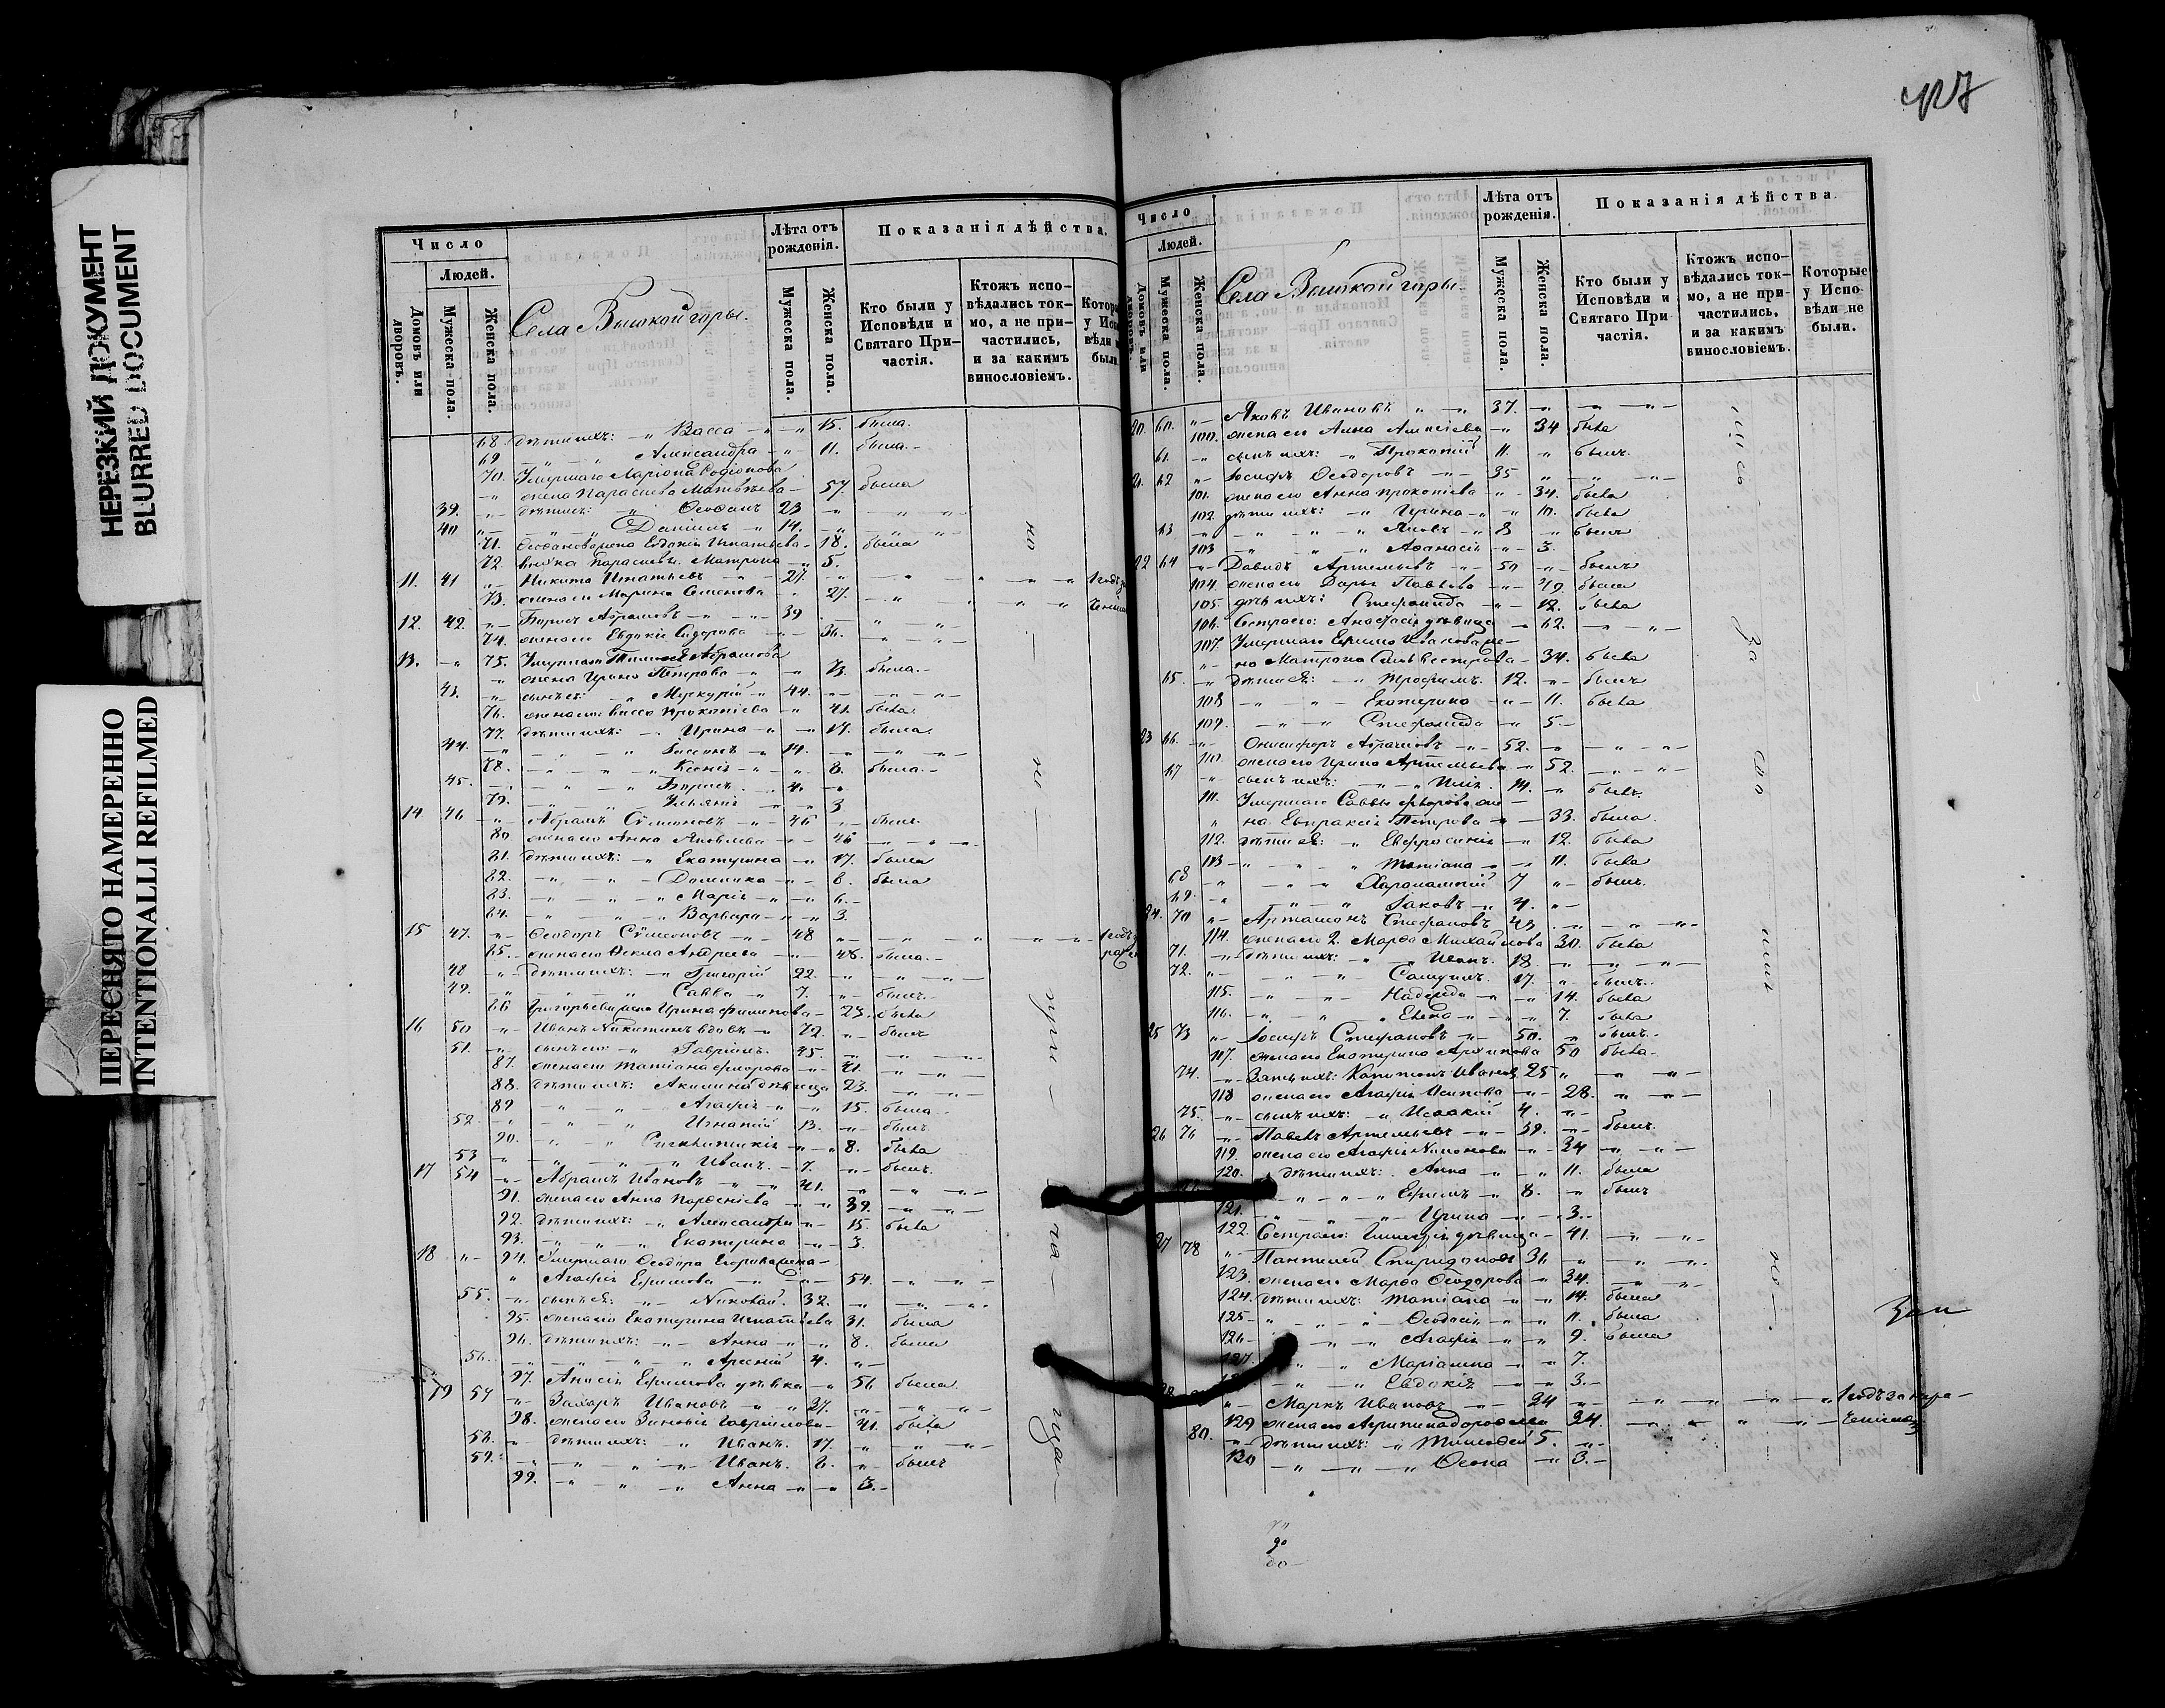 НЕРЕЗКИЙ ДОКУМЕНТ
BLURRED DOCUMENT
ПЕРЕСНЯТО НАМЕРЕННО
INTENTIONALLI REFILMED
Число
Людей.
Домовъ или дворовъ.
Мужеска пола.
Женска пола.
Села Высокой горы.
Лѣта отъ рожденія.
Мужеска пола.
Женска пола.
Показанія дѣйства.
Кто были у Исповѣди и Святаго Причастія.
Ктожъ исповѣдались токмо, а не причастились, и за какимъ винословіемъ.
68. дѣти ихъ: Васса 15. была.
69 Александра 11. была.
70. Умершаго Ларіона Родіонова
жена Парасцева Матвѣева 57. была
39. дѣти ея: Ѳеофанъ 23
40 Даніилъ 14.
71. Ѳеофанова жена Евдокія Игнатьева 18. была
72. Матрона 5.
11. 41 Никита Игнатьевъ 27.
73. жена его Марина Семенова 27.
12. 42. Борисъ Абрамовъ 39
74. жена его Евдокія Сидорова 36.
13. 75. Умершаго Абрамова
жена Ирина Петрова 73. была.
43. сынъ ея: Меркурій 44.
76. жена его Васса Прокопіева 41. была.
77. дѣти ихъ: Ирина 17. была.
44. 14.
78. Ксенія 8. была.
45. Борисъ 4.
79. 3
14 46 Абрамъ Сѵмеоновъ 46 былъ.
80 жена его Анна Яковлева 46
81. дѣти ихъ: Екатерина 17. была
82. Домника 8. была
83. Марія 6.
84. Варвара 3.
15 47. Ѳеодоръ Сѵмеоновъ 48
85. жена его Ѳекла Андреева 48. была.
48 дѣти ихъ: Григорій 22.
49. Савва 7. былъ.
86 Григорьева жена Ирина Филипова 23. была
16 50 Иванъ Никитинъ вдовъ 72. былъ
51. сынъ его: Гавріилъ. 45.
87. жена его Татіана Ѳедорова 41.
88. дѣти ихъ: Акилина дѣвица 23.
89 Агафія 15. была.
52. Игнатій 13. былъ.
90. Сигклитикія 8. была
53 Иванъ. 7. былъ.
17 54 Абрамъ Ивановъ 41.
91. жена его Анна Парѳеніева 39.
92. дѣти ихъ: Александра 15. была
93. Екатерина 3.
18 94. Умершаго Ѳеодора Егорова жена
Агафія Ефимова 54.
55. сынъ ея: Николай. 32.
95. жена его Екатерина Игнатьева 31. была
96. дѣти ихъ: Анна 8. была
56. Арсеній 4.
97. Анисія Ефимова дѣвка 56 была.
19 57 Захаръ Ивановъ 37.
98. жена его Зиновія Гавріилова 41. была
58. дѣти ихъ: Иванъ. 17.
59. Иванъ. 8. былъ
99. Анна 3.
427
Число
Людей.
Домовъ или дворовъ.
Мужеска пола.
Женска пола.
Села Высокой горы.
Лѣта отъ рожденія.
Мужеска пола.
Женска пола.
Показанія дѣйства.
Кто были у Исповѣди и Святаго Причастія.
Ктожъ исповѣдались токмо, а не причастились, и за какимъ винословіемъ.
Которые у Исповѣди не были.
20. 60. Яковъ Ивановъ 37.
100. жена его Анна Алексіева 34 была
61. сынъ ихъ: Прокопій 11. былъ.
21. 62 Іосифъ Ѳеодоровъ 35
101. жена его Анна Прокопіева 34. была
102. дѣти ихъ: Ирина 10. была
63 Яковъ 8 былъ
103 Аѳанасія 3.
22 64 Давидъ Артемьевъ 50 былъ
104. жена его Дарья Павлова 49. была
105. дочь ихъ: Стефанида 12. была
106. Сестра его: Анастасія дѣвица 62.
107. Умершаго Ефима Иванова же-
на Матрона Сильвестрова 34. была
65. дѣти ея: Трофимъ. 12. былъ
108 Екатерина 11. была
109. Стефанида 5.
23 66. Онисифоръ Абрамовъ 52.
110 жена его Ирина Артемьева 52.
67 сынъ ихъ: Илія. 14. былъ.
111. Умершаго Саввы Ѳедорова же-
на Евпраксія Петрова 33. была.
112. дѣти ея: Евфросинія 12. была
113 Татіана 11. была
68 Харалампій 7 былъ.
69. Іаковъ 4.
24. 70 Артамонъ Стефановъ 43
114. жена его 2. Марѳа Михайлова 30. была
71. дѣти ихъ: Иванъ. 18.
72. Самуилъ. 17. былъ.
115. Надежда 14. была
116. Елена 7. была
25 73 Іосифъ Стефановъ 50. былъ.
117. жена его Екатерина Архипова 50 была.
74. Зять ихъ: Капитонъ Ивановъ 25
118 жена его Агафія Осипова 28.
75. сынъ ихъ: Исаакій 4.
26 76 Павелъ Артемьевъ 39. былъ.
119. жена его Агафія Никонова 34
120. дѣти ихъ: Анна 11. была
Ефимъ 8. былъ
121. Ирина 3.
122. Сестра его: дѣвица 41.
27 78 Пантелей Спиридоновъ 31
123. жена его Марѳа Ѳеодорова 34.
124. дѣти ихъ: Татіана 14. была
125 Ѳеодосія 11. была
126 Агафія 9. была
127. Маріамна 7.
Евдокія 3.
Маркъ Ивановъ 24
129 жена его Агрипина Дороѳеева 24.
80. дѣти ихъ: Тимоѳей 5.
130 Ѳекла 3.